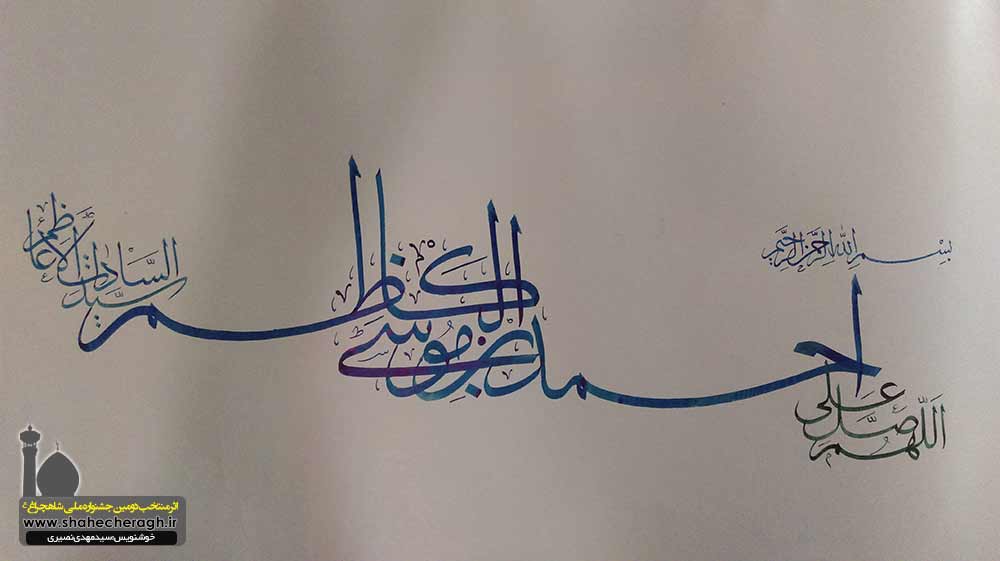 بِسْمِ اللهِ الرَّحْمنِ الرَّحیم
اَللّهُمَّ صَلِّ عَلی
احمد بن موسَی الکاظم
سیّد السّادات الأعاظم
اثر منتخب دومین جشنواره ملی شاهچراغ ع
www.shahecheragh.ir
خوشنویس: سید مهدی نصیری